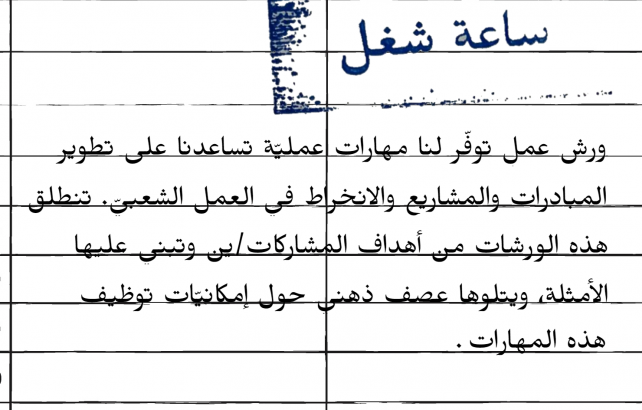 ساعة شغل
ورش عمل توفّر لنا مهارات عمليّة تساعدنا على تطوير
المبادرات والمشاريع والانخراط في العمل الشعبيّ. تنطلق
هذه الورشات من أهداف المشاركات/ين وتبني عليها
الأمثلة، ويتلوها عصف ذهني حول إمكانيّات توظيف
هذه المهارات .